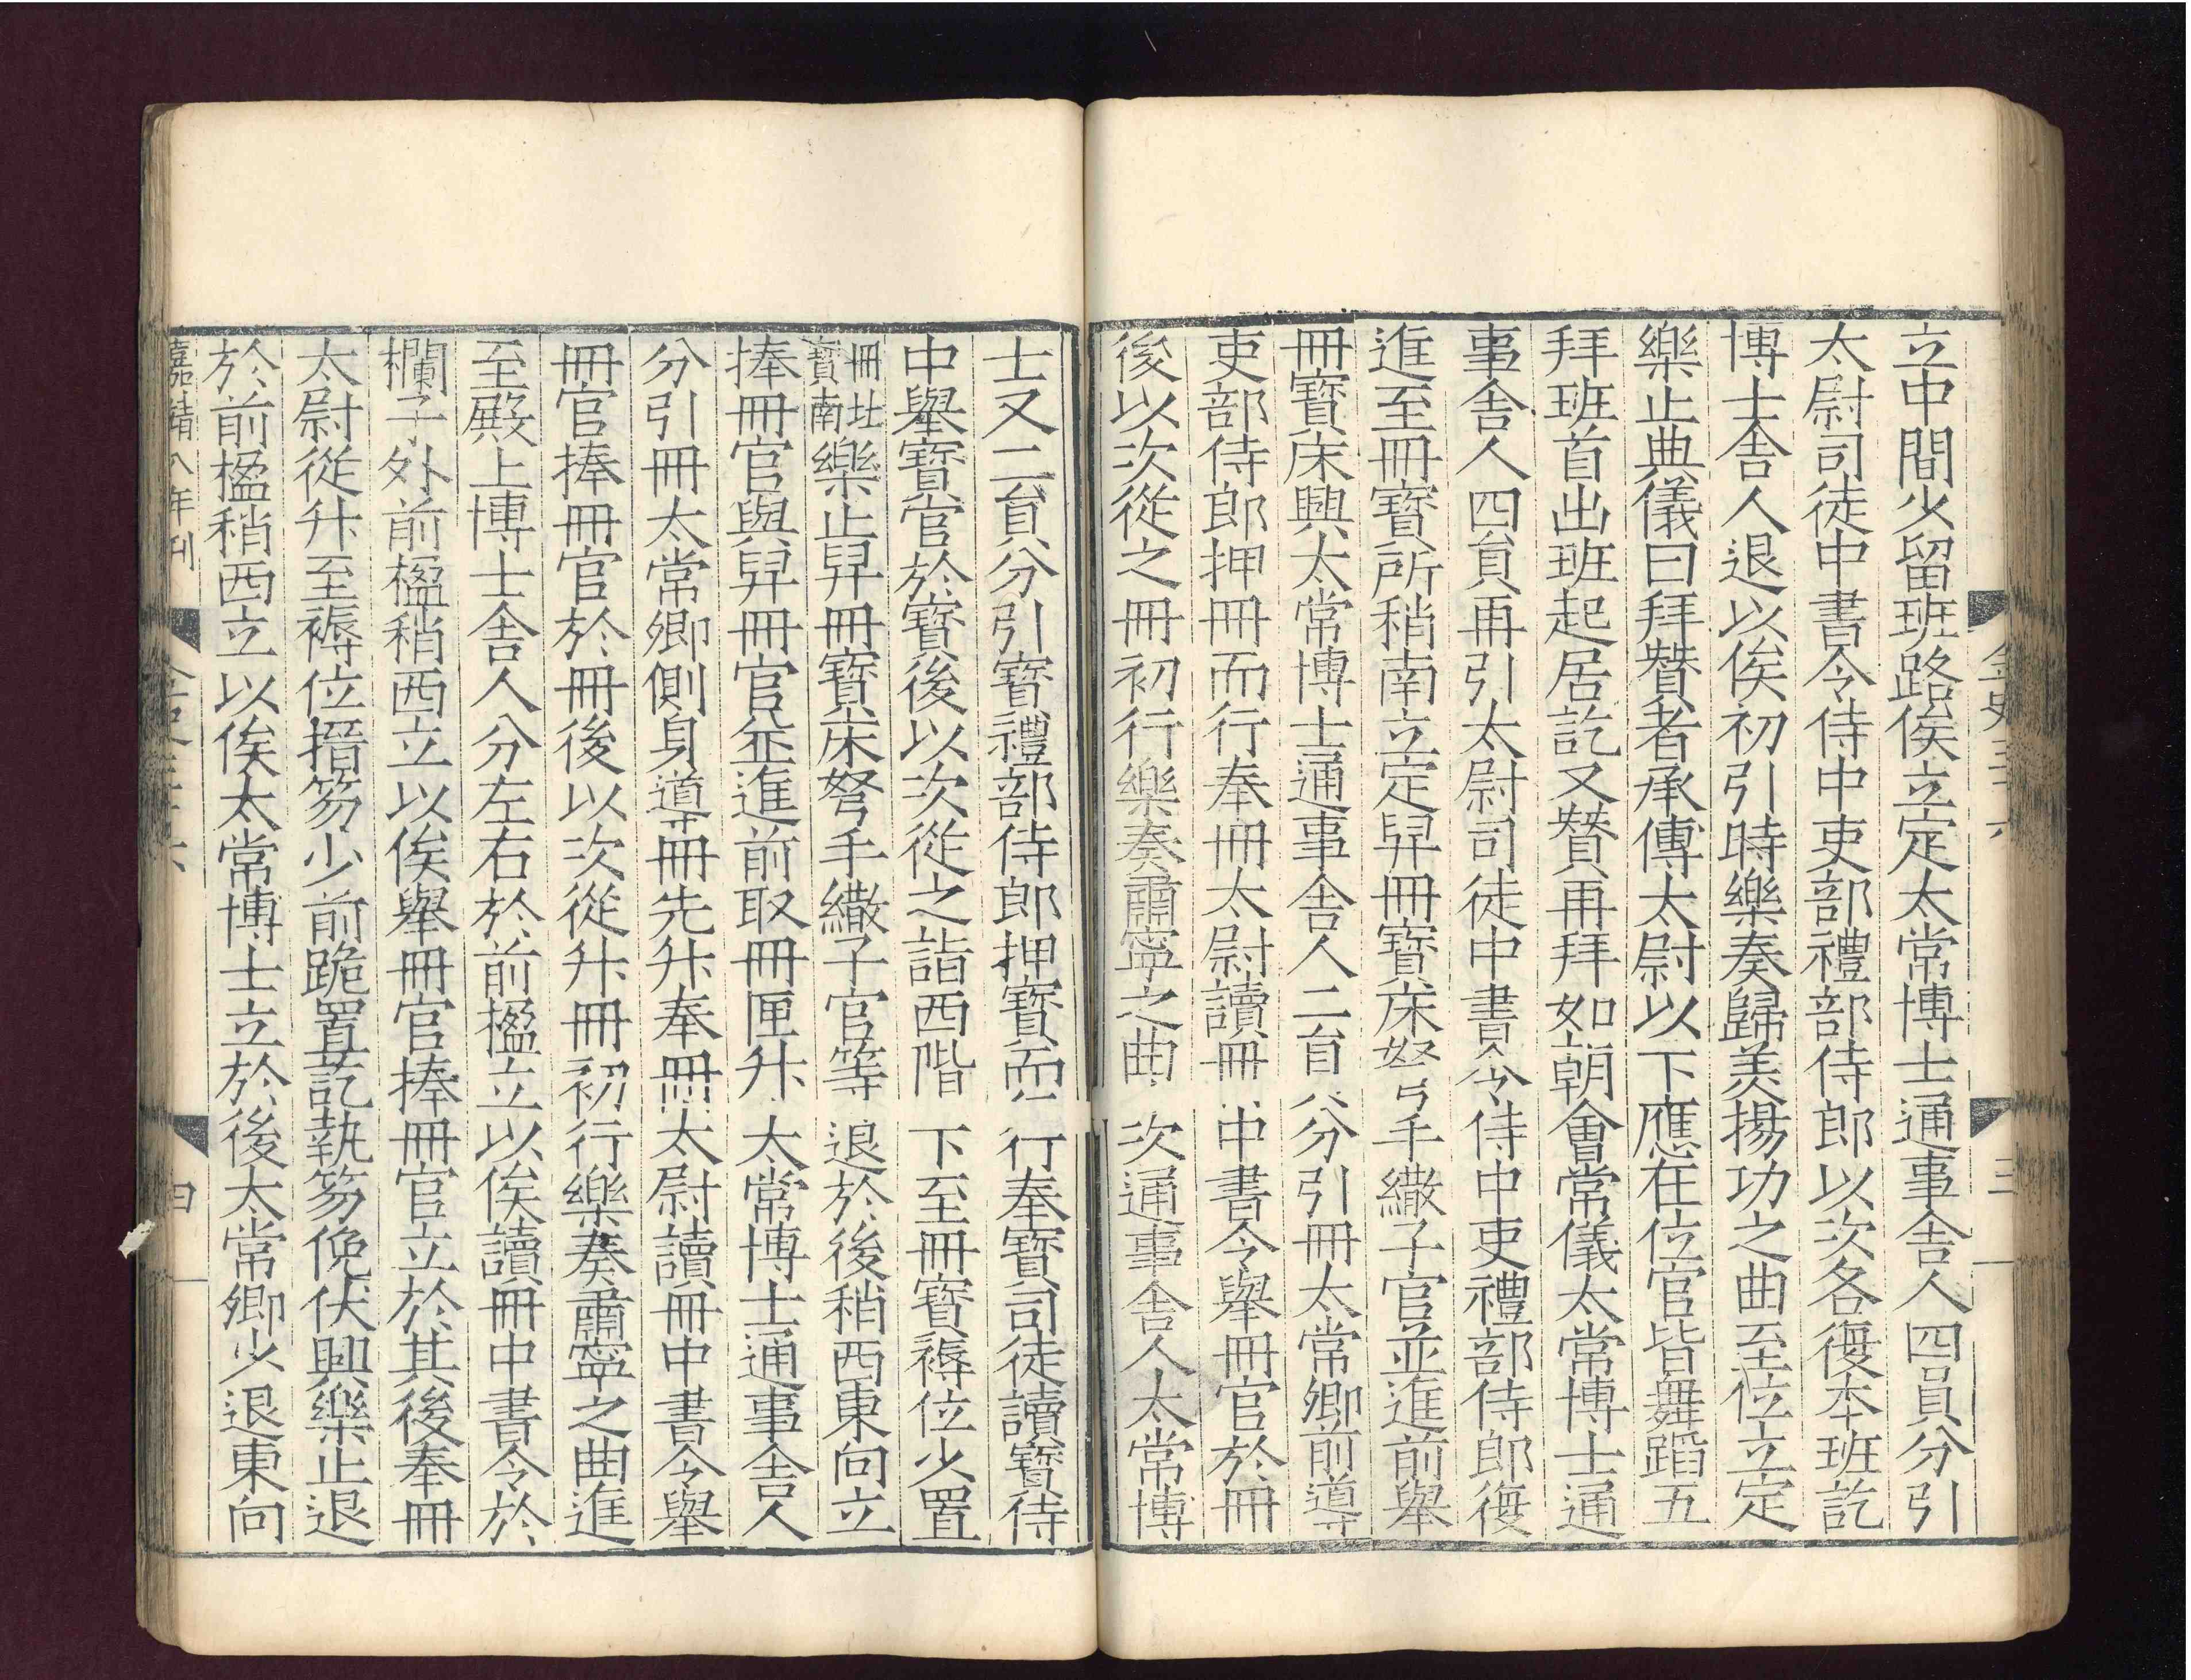 立中間少留班路俟立定太常博士通事舍人四員分引
太尉司徒中書令侍中吏部禮部侍郎以次各復本班訖
博士舍人退以俟初引時樂奏歸美揚功之曲至位立定
樂止典儀曰拜贊者承傳太尉以下應在位官皆舞蹈五
拜班首出班起居訖又贊再拜如朝會常儀太常博士通
事舍人四員再引太尉司徒中書令侍中吏禮部侍郎復
進至冊寶所稍南立定舁冊寶床弩手繖子官並進前舉
冊寶床興太常博士通事舍人二員分引冊太常卿前導
吏部侍郎押冊而行奉冊太尉讀冊中書令舉冊官於冊
後以次從之冊初行樂奏肅寧之曲次通事舍人太常博
士又二員分引寶禮部侍郎押寶而行奉寶司徒讀寶侍
中舉寶官於寶後以次從之詣西階下至冊寶褥位少置
冊北寶南樂止舁冊寶床弩手繖子官等退於後稍西東向立
捧冊官與舁冊官並進前取冊匣升太常博士通事舍人
分引冊太常卿側身導冊先升奉冊太尉讀冊中書令舉
冊官捧冊官於冊後以次從升冊初行樂奏肅寧之曲進
至殿上博士舍人分左右於前楹立以俟讀冊中書令於
欄子外前楹稍西立以俟舉冊官捧冊官立於其後奉冊
太尉從升至褥位搢笏少前跪置訖執笏俛伏興樂止退
於前楹稍西立以俟太常博士立於後太常卿少退東向
嘉靖八年刊
金史三十六
三
四